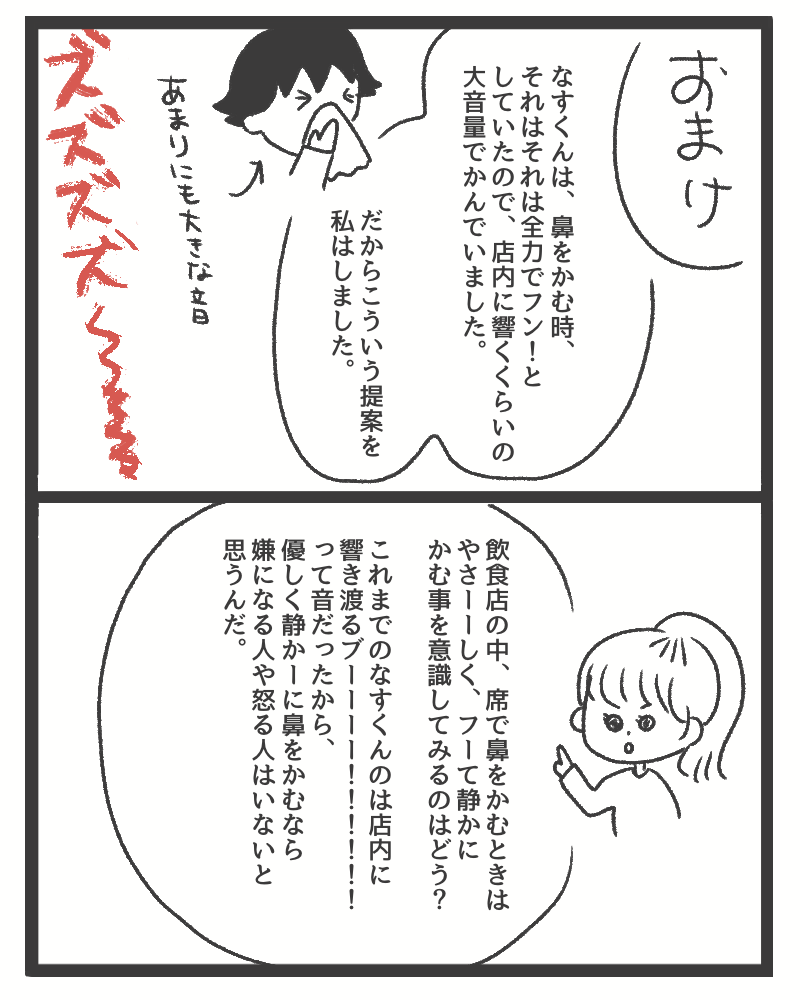 おまけ
なすくんは、鼻をかむ時、
それはそれは全力でフン！と
していたので、店内に響くくらいの
大音量でかんでいました。
だからこういう提案を
私はしました。
あまりにも大きな音
ズズズズ
飲食店の中、席で鼻をかむときは
やさーーしく、フーて静かに
かむ事を意識してみるのはどう？
これまでのなすくんのは店内に
響き渡るブーーーー！！！！！！
って音だったから、
優しく静かーに鼻をかむなら
嫌になる人や怒る人はいないと
思うんだ。